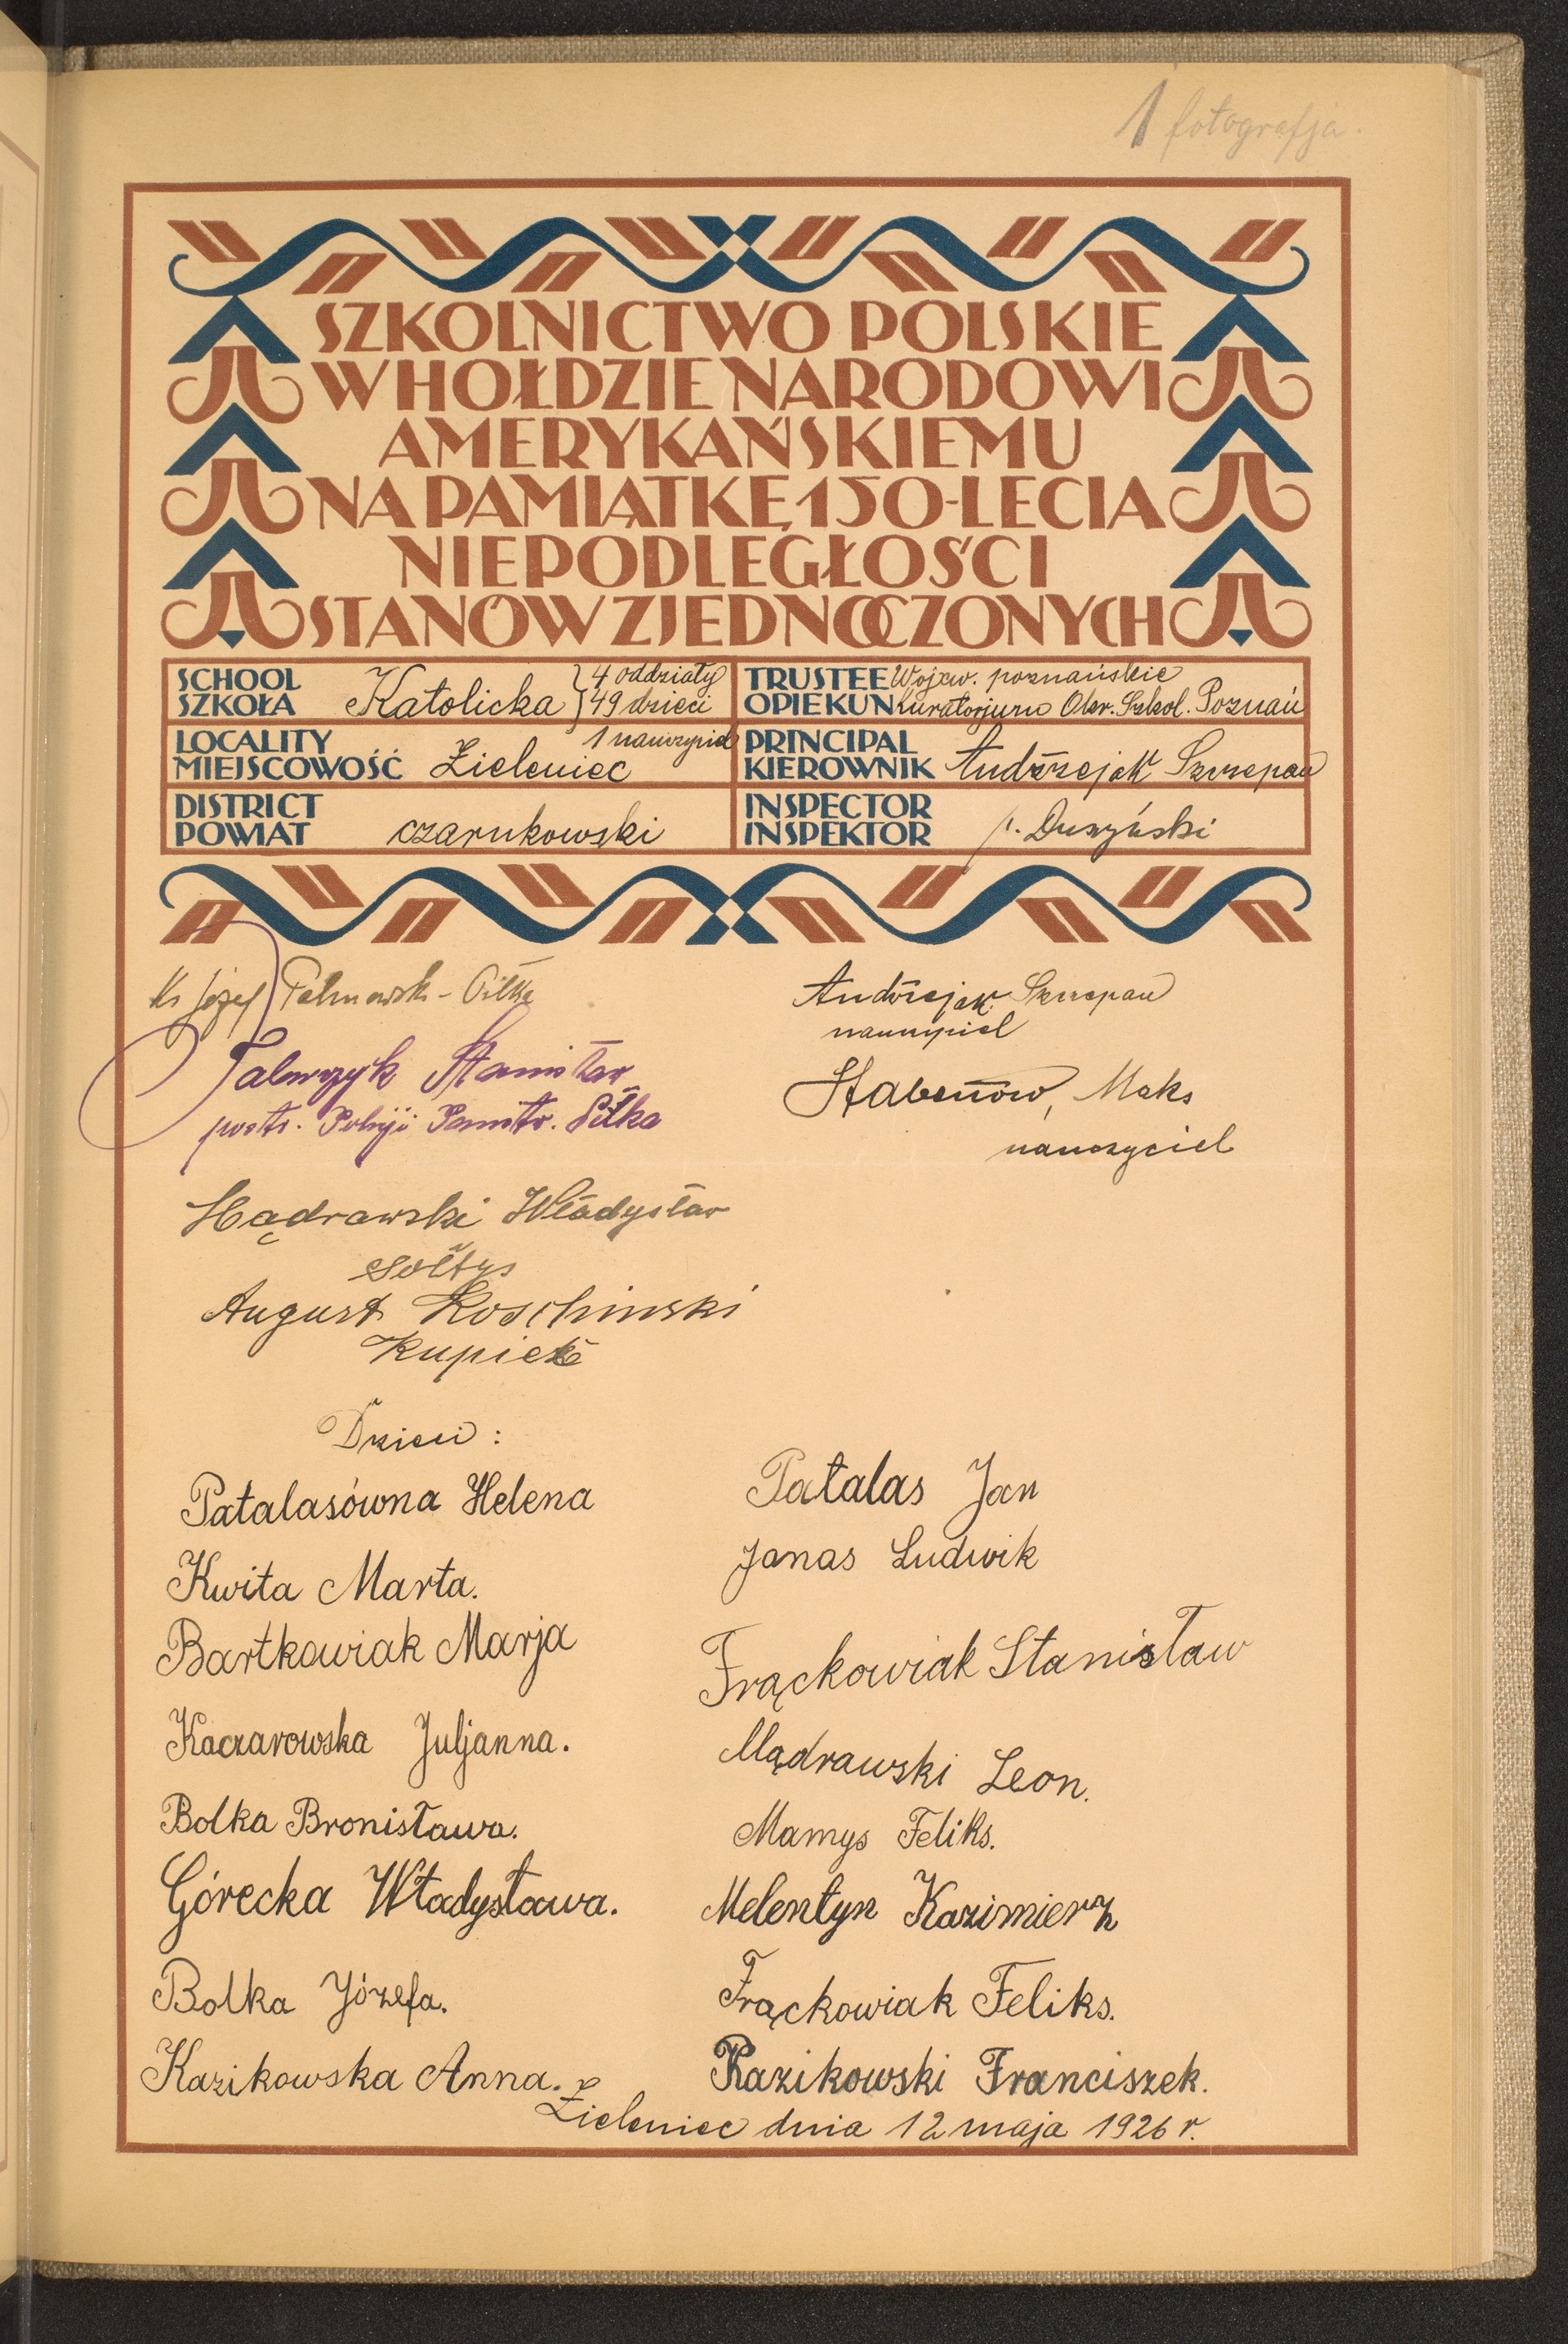 1 fotografja.
SZKOLNICTWO POLSKIE
W HOŁDZIE NARODOWI
AMERYKAŃSKIEMU
NA PAMIĄTKĘ 150-LECIA
NIEPODLEGŁOŚCI
STANÓW ZJEDNOCZONYCH
SCHOOL
SZKOŁA
Katolicka } 4 oddziały
49 dzieci
1 nauczyciel
TRUSTEE
OPIEKUN
Wojew. poznańskie
Kuratorjum Okr. Szkol. Poznań
LOCALITY
MIEJSCOWOŚĆ
Zieleniec
PRINCIPAL
KIEROWNIK
Andrzejak Szczepan
DISTRICT
POWIAT
czarnkowski
INSPECTOR
INSPEKTOR
p. Duszyński
Ks Józef
Stanisław
Andrzejak Szczepan
nauczyciel
Policji Piłka
Stabenow, Maks
nauczyciel
Mądrawski Władysław
sołtys
August Koschinski
Kupiec
Dzieci :
Patalasówna Helena
Kwita Marta.
Bartkowiak Marja
Kaczarowska Juljanna.
Bolka Bronisława.
Górecka Władysława.
Bolka Józefa.
Kazikowska Anna.
Patalas Jan
Janas Ludwik
Frąckowiak Stanisław
Mądrawski Leon.
Mamys Feliks.
Melentyn Kazimierz
Frąckowiak Feliks.
Kazikowski Franciszek.
Zieleniec dnia 12 maja 1926 r.